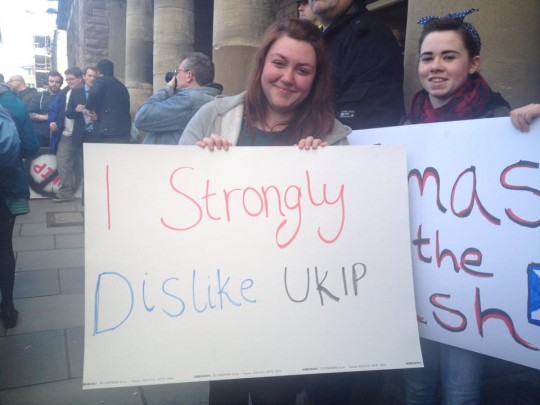 I Strongly
Dislike UKIP
mas
the
sh